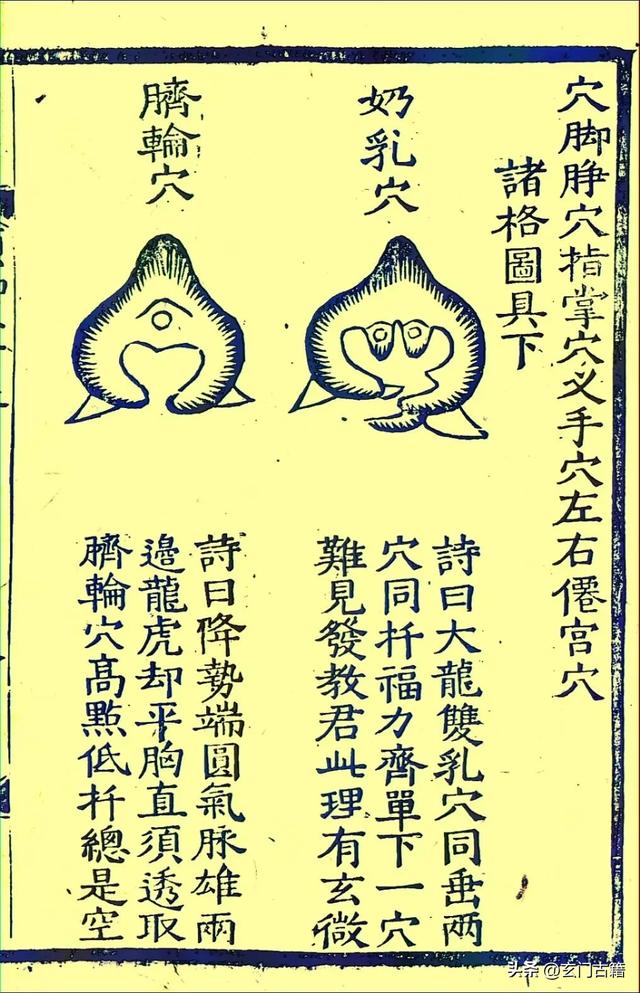 穴脚脖穴指掌穴义手穴左右僊宫穴
諸格圖具下
奶乳穴
詩曰大龍雙乳穴同垂兩
穴同扦福力齊單下一穴
難見發教君此理有玄微
臍輪穴
詩曰降勢端圓氣脉雄兩
邉龍虎却平胸直須透取
臍輪穴髙㸃低扦總是空
头条 @玄门古籍